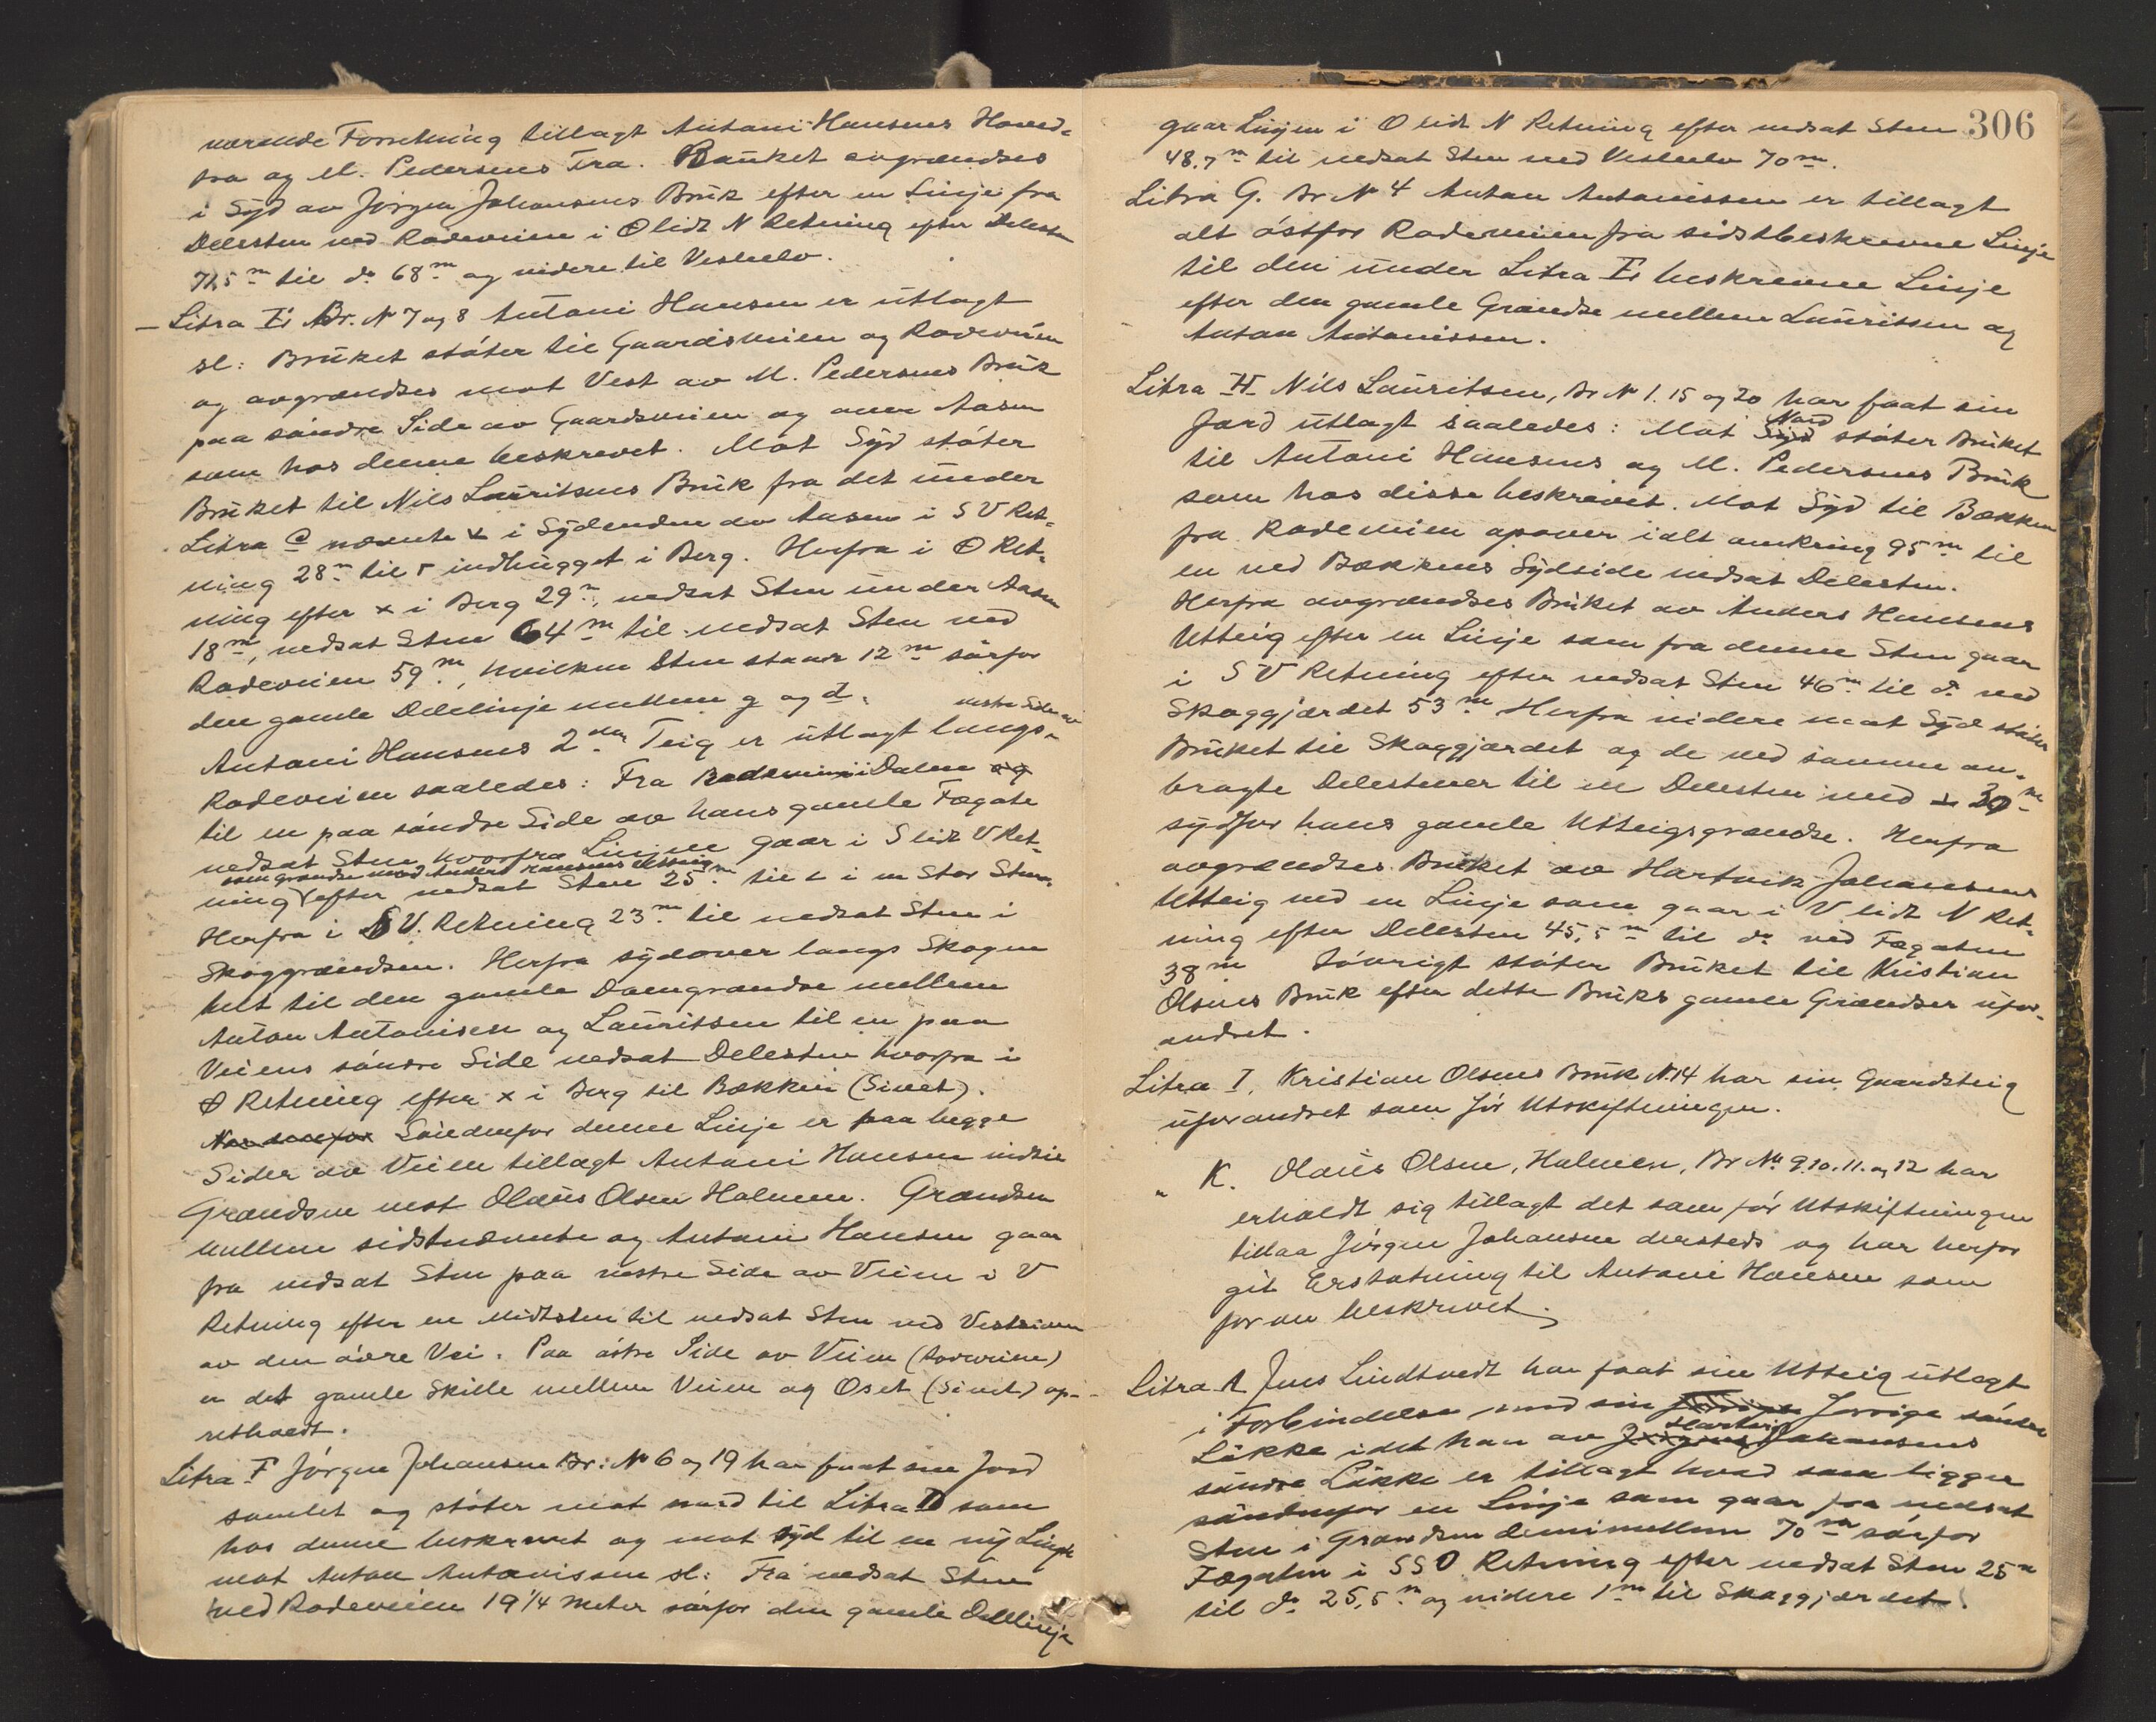 værende Forretning tillagt Antoni Hansens Hoved-
fra og M. Pedersens Fra. Bruket avgrændses
i Syd av Jørgen Johansens Bruk efter en Linje fra
Delesten ved Rodeveien i O lidt N Retning efter Delesten
71,5 m til do 68 m og videre til Vestelv.
— Litra E. Br. No 7 og 8 Antoni Hansen er utlagt
sl: Bruket støter til Gaardsveien og Rodeveien
og avgrændses mot Vest av M. Pedersens Bruk
paa søndre Side av Gaardsveien og over Aasen
som hos denne beskrevet. Mot Syd støter
Bruket til Nils Lauritsens Bruk fra det under
Litra C nævnte x i Sydenden av Aasen i S V Ret-
ning 28 m til indhugget i Berg. Herfra i O Ret-
ning efter x i Berg 29 m, nedsat Sten under Aasen
18 m, nedsat Sten 64 m til nedsat Sten ved
Rodeveien 59 m, hvilken Sten staar 12 m sørfor
den gamle Delelinje mellem g og d.
Antoni Hansens 2den Teig er utlagt langs vestre Side av
Rodeveien saaledes: Fra Rodeveien i Dalen og
til en paa søndre Side av hans gamle Fægate
nedsat Sten hvorfra Linjen gaar i S lidt V Ret-
som grændse mod Anders Hansens Utteig
ning efter nedsat Sten 25 m til i en Stor Sten.
Herfra i S V. Retning 23 m til nedsat Sten i
Skoggrændsen. Herfra sydover langs Skogen
hut til den gamle grændse mellem
Anton Antonisen og Lauritsen til en paa
Veiens søndre Side nedsat Delesten hvorfra i
O Retning efter x i Berg til Bækken (Sivet).
Nordenfor Søndenfor denne Linje er paa begge
Sider av Veien tillagt Antoni Hansen indtil
Grændsen mot Olaus Olsen Holmen. Grændsen
mellem sidstnævnte og Antoni Hansen gaar
fra nedsat Sten paa vestre Side av Veien i V
Retning efter en Midtsten til nedsat Sten ved
av den øvre Vei. Paa østre Side av Veien (Rodeveien)
er det gamle Skille mellem Veien og Oset (Sivet) op-
retholdt.
Litra F Jörgen Johansen Br: No 6 og 19 har faat sin Jord
samlet og støter mot nord til Litra D som
hos denne beskrevet og mot syd til en ny Linje
mot Anton Antonissen sl: Fra nedsat Sten
ved Rodeveien 19 1/4 meter sørfor den gamle Delelinje
306
gaar Linjen i O lidt N Retning efter nedsat Sten
48.7 m til nedsat Sten ved Vestelv 70 m.
Litra G. Br No 4 Anton Antonissen er tillagt
alt østfor Rodeveien fra sidstbeskrevne Linje
til den under Litra E beskrevne Linje
efter den gamle Grændse mellem Lauritsen og
Anton Antonissen.
Litra H Nils Lauritsen, Br No 1. 15 og 20 har faat sin
Jord utlagt saaledes: Mot Syd Nord støter Bruket
til Antoni Hansens og M. Pedersens Bruk
som hos disse beskrevet. Mot Syd til Bækken
fra Rodeveien opover ialt omkring 95 m til
en ved Bækkens Sydside nedsat Delesten.
Herfra avgrændses Bruket av Anders Hansens
Utteig efter en Linje som fra denne Sten gaar
i S V Retning efter nedsat Sten 46 m til do ved
Skoggjærdet 53 m Herfra videre mot Syd støter
Bruket til Skoggjærdet og de ved samme an-
bragte Delestener til en Delesten med 30 m
sydfor hans gamle Utteigsgrændse. Herfra
avgrændses Bruket av Hartvik Johansens
Utteig ved en Linje som gaar i V lidt N Ret-
ning efter Delesten 45,5 m til do ved Fægaten
38 m Iøvrigt støter Bruket til Kristian
Olsens Bruk efter dette Bruks gamle Grændser ufor-
andret.
Litra I, Kristian Olsens Bruk No 14 har sin Gaardsteig
uforandret som før Utskiftningen.
" K. Olaus Olsen, Holmen, Br No 9. 10. 11. og 12 har
erholdt sig tillagt det som før Utskiftningen
tillaa Jörgen Johansen dersteds og har herfor
git Erstatning til Antoni Hansen som
foran beskrevet.
Litra A Jens Lindtvedt har faat sin Utteig utlagt
i Forbindelse med sin forrige Jorvige søndre
Løkke idet han av Jörgens Hartvig Johansens
søndre Løkke er tillagt hvad som ligger
søndenfor en Linje som gaar fra nedsat
Sten i Grændsen demimellem 70 m sørfor
Fægaten i SSO. Retning efter nedsat Sten 25 m
til do 25,5 m og videre 1 m til Skoggjærdet.